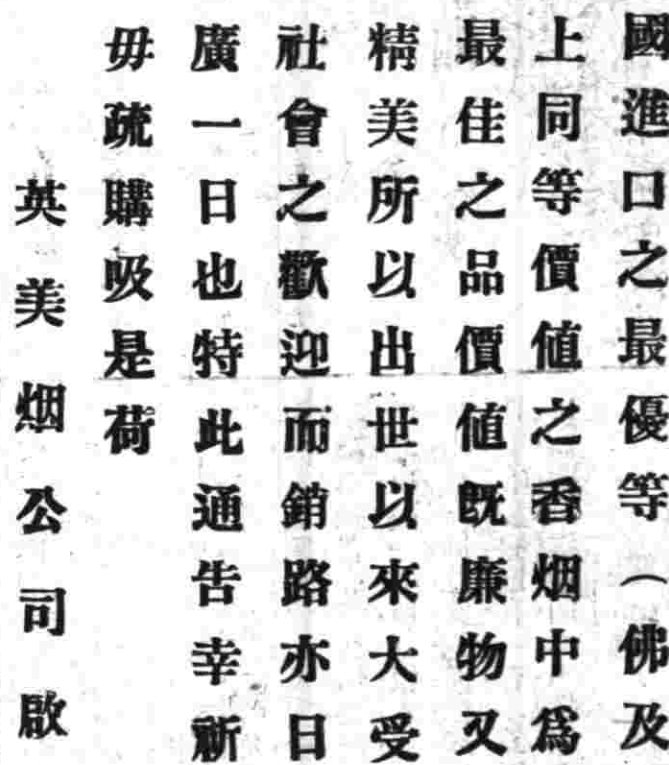 國進口之最優等（佛及
上同等價值之香烟中爲
最佳之品價值既廉物又
精美所以出世以來大受
社會之歡迎而銷路亦日
廣一日也特此通告幸祈
毋疏購吸是荷
英美烟公司啟